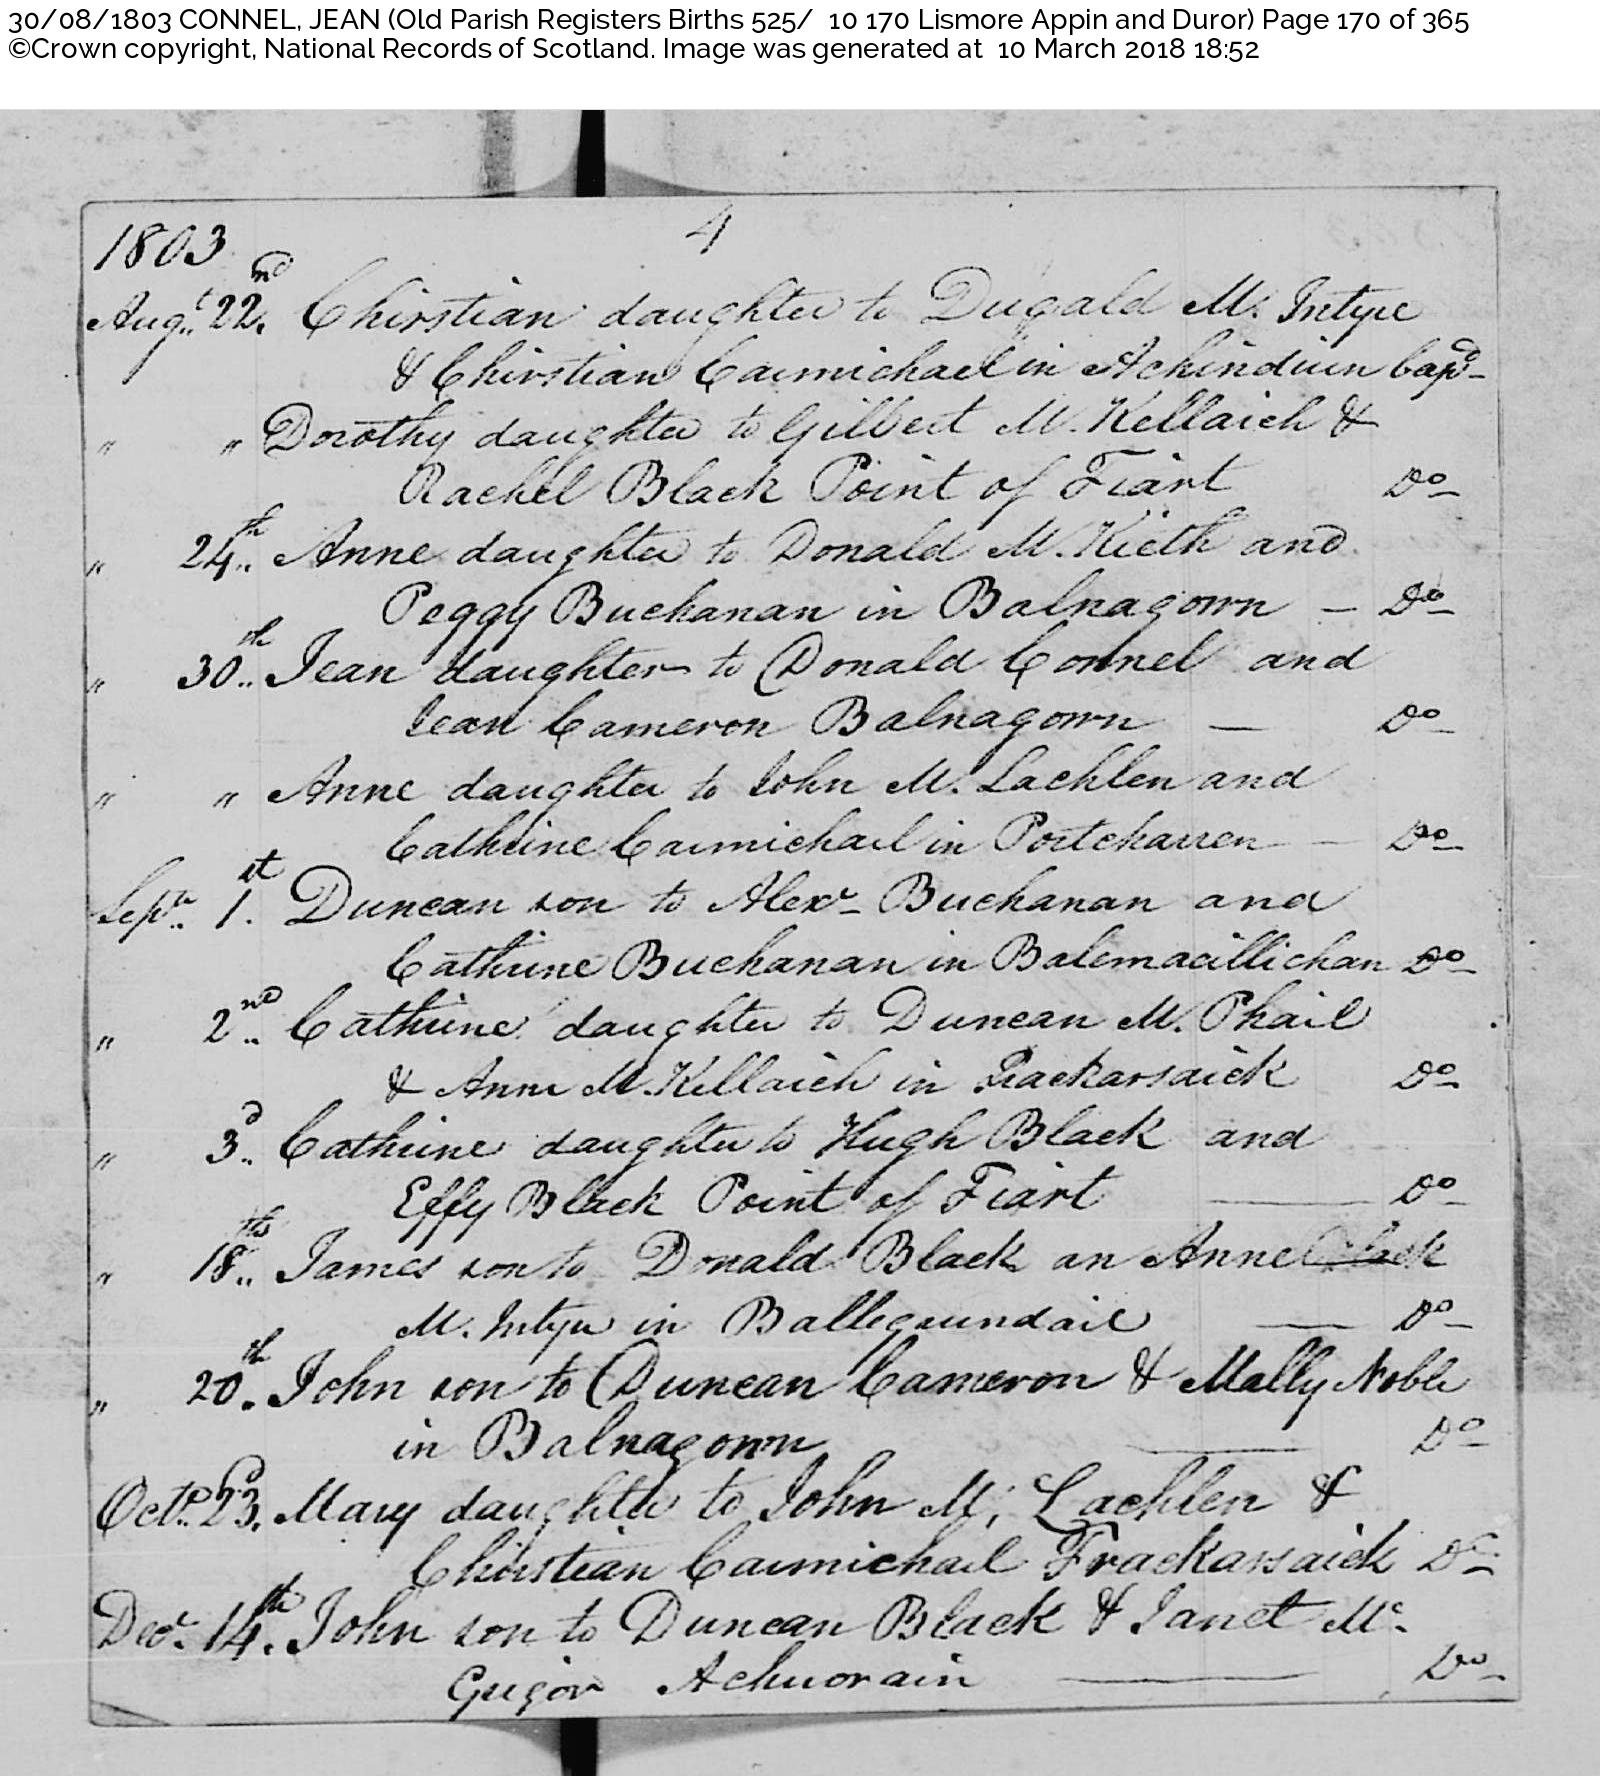 30/08/1803 CONNEL, JEAN (Old Parish Registers Births 525/ 10 170 Lismore Appin and Duror) Page 170 of 365
©Crown copyright, National Records of Scotland. Image was generated at 10 March 2018 18:52
1803 4
Augt. 22nd. Chirstian daughter to Dugald Mc. Intyre
& Chirstian Carmichael in Achinduin bapd
" " Dorothy daughter to Gilbert Mc. Kellaich &
Rachel Black Point of Fiart Do
" 24th. Anne daughter to Donald Mc. Kieth and
Peggy Buchanan in Balnagown — Do
" 30th.. Jean daughter to Donald Connel and
Jean Cameron Balnagown — Do
" " Anne daughter to John Mc. Lachlen and
Cathrine Carmichael in Portcharren — Do
Septr. 1st. Duncan son to Alexr Buchanan and
Cathrine Buchanan in Balemacillichan Do
" 2nd.. Cathrine daughter to Duncan Mc. Phail
& Anne Mc. Kellaich in Frackarsaick Do
" 3d.. Cathrine daughter to Hugh Black and
Effy Black Point of Fiart — Do
" 18th.. James son to Donald Black an Anne Black
Mc. Intyre in Ballegrundail — Do
" 20th. John son to Duncan Cameron & Mally Noble
in Balnagown — Do
Octr. 23d. Mary daughter to John Mc. Lachlen &
Chirstian Carmichael Frackarsaick Do
Decr. 14th. John son to Duncan Black & Janet Mc.
Grigor Achuorain — Do